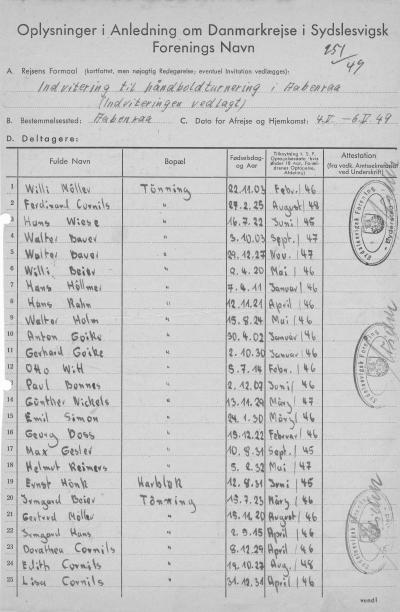 Oplysninger i Anledning om Danmarkrejse i Sydslesvigsk
Forenings Navn
251/49
A. Rejsens Formaal (kortfattet, men nøjagtig Redegørelse; eventuel Invitation vedlægges):
Indvitering til håndboldturnering i Aabenraa
(Indviteringen vedlagt)
B. Bestemmelsessted: Aabenraa C. Dato for Afrejse og Hjemkomst: 4.V – 6.V 49
D. Deltagere:
Fulde Navn Bopæl Fødselsdag og Aar Attestation
1 Willi Möller Tönning 22.11.03 Febr./46
2 Ferdinand Cornils " 27.2.25 August/48
3 Hans Wiese " 16.7.22 Juni/45
4 Walter Bauer " 3.10.03 Sept./47
5 Walter Bauer " 29.12.27 Nov./47
6 Willi Beier " 9.4.20 Mai/46
7 Hans Höllmer " 7.4.11 Januar/46
8 Hans Rahn " 12.11.21 April/46
9 Walter Holm " 15.8.24 Mai/46
10 Anton Goike " 30.4.02 Januar/46
11 Gerhard Goike " 2.10.30 Januar/46
12 Otto Witt " 5.7.14 Febr./46
13 Paul Bonnes " 2.12.09 Juni/46
14 Günther Nickels " 13.11.29 März/47
15 Emil Simon " 24.1.30 März/46
16 Georg Doss " 19.12.22 Februar/46
17 Max Gesler " 10.8.31 Sept./45
18 Helmut Reimers " 5.2.32 Mai/47
19 Ernst Hönk Harblek 12.8.31 Juni/45
20 Irmgard Beier Tönning 19.7.23 März/46
21 Gertrud Möller " 15.11.20 August/46
22 Irmgard Hans " 2.9.15 April/46
23 Dorothea Cornils " 8.12.29 April/46
24 Edith Cornils " 19.10.27 Aug./48
25 Lisa Cornils " 31.12.31 April/46
vend!